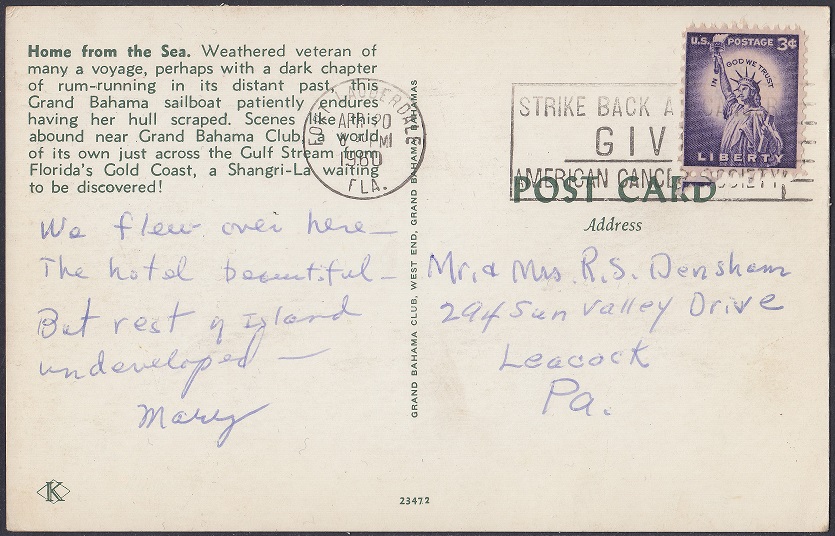 Home from the Sea. Weathered veteran of
many a voyage, perhaps with a dark chapter
of rum-running in its distant past, this
Grand Bahama sailboat patiently endures
having her hull scraped. Scenes like this
abound near Grand Bahama Club, a world
of its own just across the Gulf Stream from
Florida's Gold Coast, a Shangri-La waiting
to be discovered!
We flew over here—
The hotel beautiful—
But rest of Island
undeveloped—
Mary
K
GRAND BAHAMA CLUB, WEST END, GRAND BAHAMA, BAHAMAS
23472
FORT LAUDERDALE
APR 20
PM
1960
FLA.
STRIKE BACK A
GIV
AMERICAN CANCER SOCIETY
U.S. POSTAGE 3¢
IN GOD WE TRUST
LIBERTY
POST CARD
Address
Mr. & Mrs. R.S. Densham
294 Sun Valley Drive
Leacock
Pa.